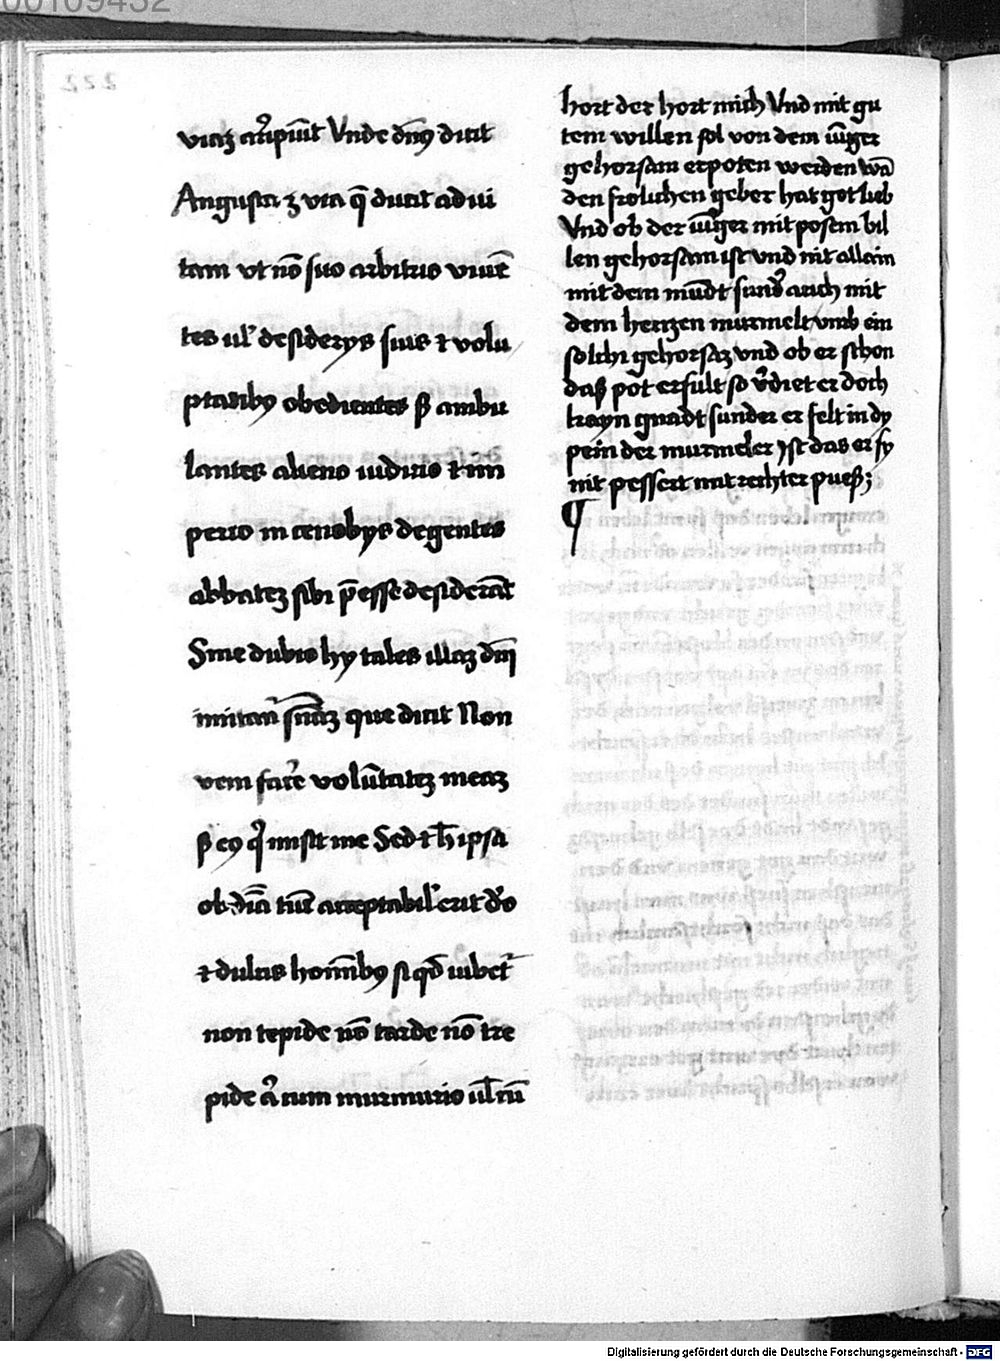 viaʒ arꝛipiūt Vnde dn̄s dicit
Angusta ʒ via q̄ ducit ad vi
tam vt nō suo arbitrio viuē
tes ul' desiderys suis ⁊ volu
ptatibꝰ obedientes ꝭ ambu
lantes alieno iudicio ⁊ im
perio in cenobys degentes
abbateʒ sibi p̄esse desiderāt
Sine dubio hy tales illaʒ dn̄i
imitant' sn̄iaʒ que dicit Non
veni facē volūtateʒ meaʒ
ꝭ eꝰ q' misit me Sed ⁊ h̄ ipsa
obediīa tūc acceptabil' erit do
⁊ dulcis homībꝰ si qd̄ iubet'
non tepide nō tarde nō tre
pide a' cum murmurio ul' cū
hort der hort mich Vnd mit gu
tem willen sol von dem iūger
gehorsam erpoten werden wā
den frolichen geber hat got lieb
Vnd ob der iūger mit posem bil
len gehorsam ist vnd nit allain
mit dem mūdt sund' auch mit
dem hertzen murmelt vmb ein
solchi gehorsaʒ vnd ob er schon
daß pot erfult so v'diet er doch
kayn gnadt sunder er felt in dy
pein der murmeler yst das er sy
nit pessert mit rechter pueß;
Digitalisierung gefördert durch die Deutsche Forschungsgemeinschaft - DFG